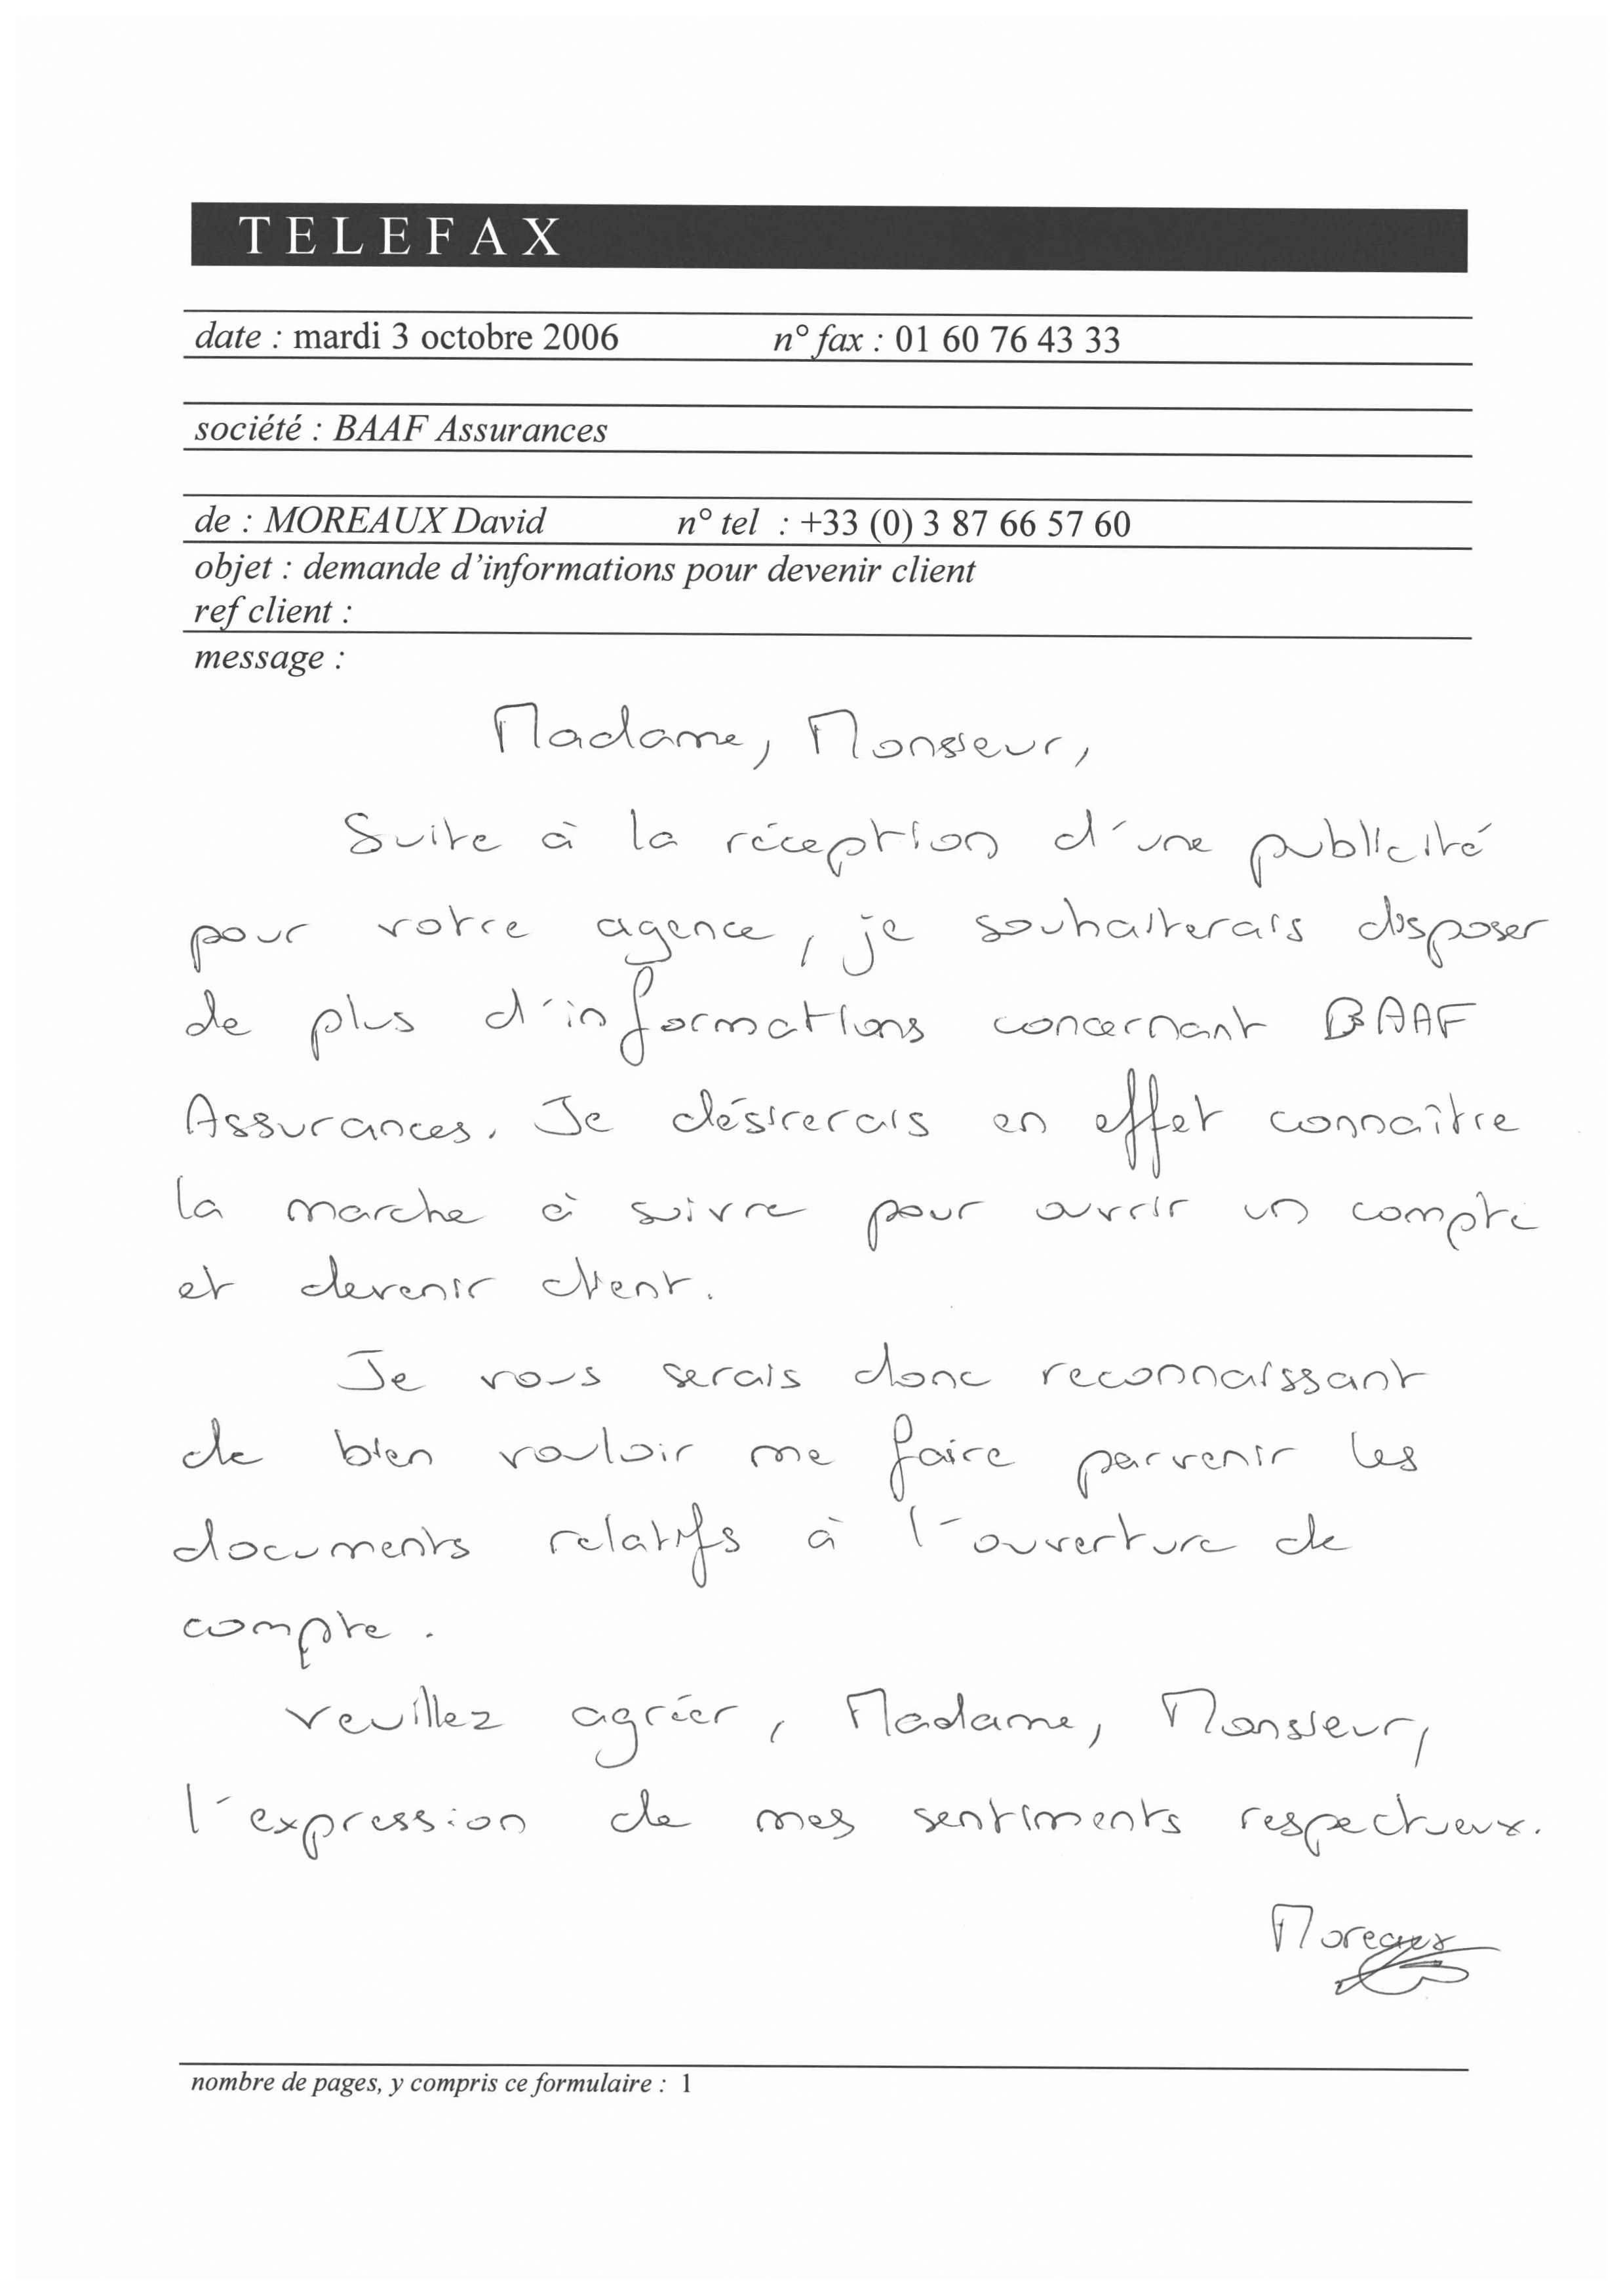 TELEFAX
date : mardi 3 octobre 2006 n° fax : 01 60 76 43 33
société : BAAF Assurances
de : MOREAUX David n° tel : +33 (0) 3 87 66 57 60
objet : demande d'informations pour devenir client
ref client :
message :
Madame, Monsieur,
Suite à la réception d'une publicité
pour votre agence, je souhaiterais disposer
de plus d'informations concernant BAAF
Assurances. Je désirerais en effet connaître
la marche à suivre pour ouvrir un compte
et devenir client.
Je vous serais donc reconnaissant
de bien vouloir me faire parvenir les
documents relatifs à l'ouverture de
compte.
Veuillez agréer, Madame, Monsieur,
l'expression de mes sentiments respectueux.
Moreaux
nombre de pages, y compris ce formulaire : 1